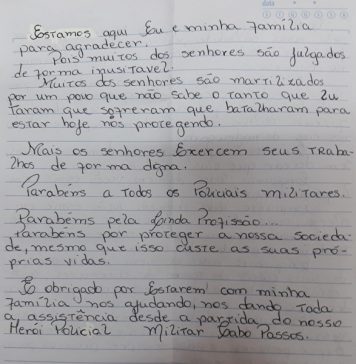 Estamos aqui Eu e minha Família
para agradecer.
Pois muitos dos senhores são julgados
de forma inusitavel.
Muitos dos senhores são martilizados
por um povo que não sabe o tanto que lu
taram que sofreram que batalharam para
estar hoje nos protegendo.
Mais os senhores Exercem seus Traba-
lhos de forma digna.
Parabéns a Todos os Policiais militares.
Parabéns pela Linda Profissão...
Parabéns por proteger a nossa socieda-
de, mesmo que isso custe as suas pró-
prias vidas.
E obrigado por Estarem com minha
Família nos ajudando, nos dando Toda
a assistência desde a partida do nosso
Herói Policial Militar Cabo Passos.